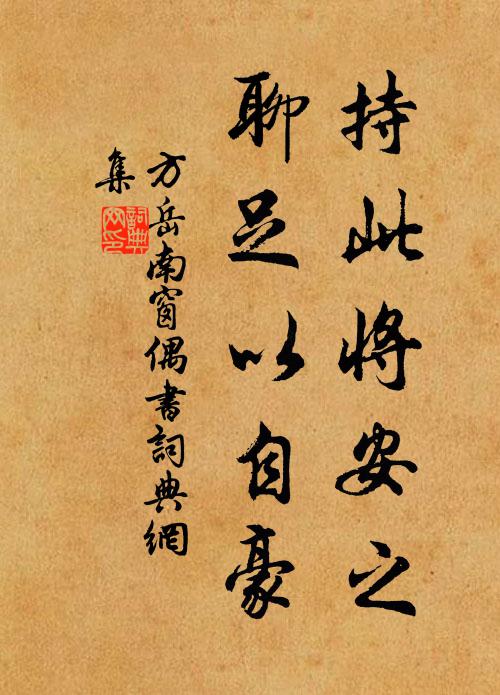 持此將安之
聊足以自豪
方岳南窗偶書詞典網
集
詞典網印